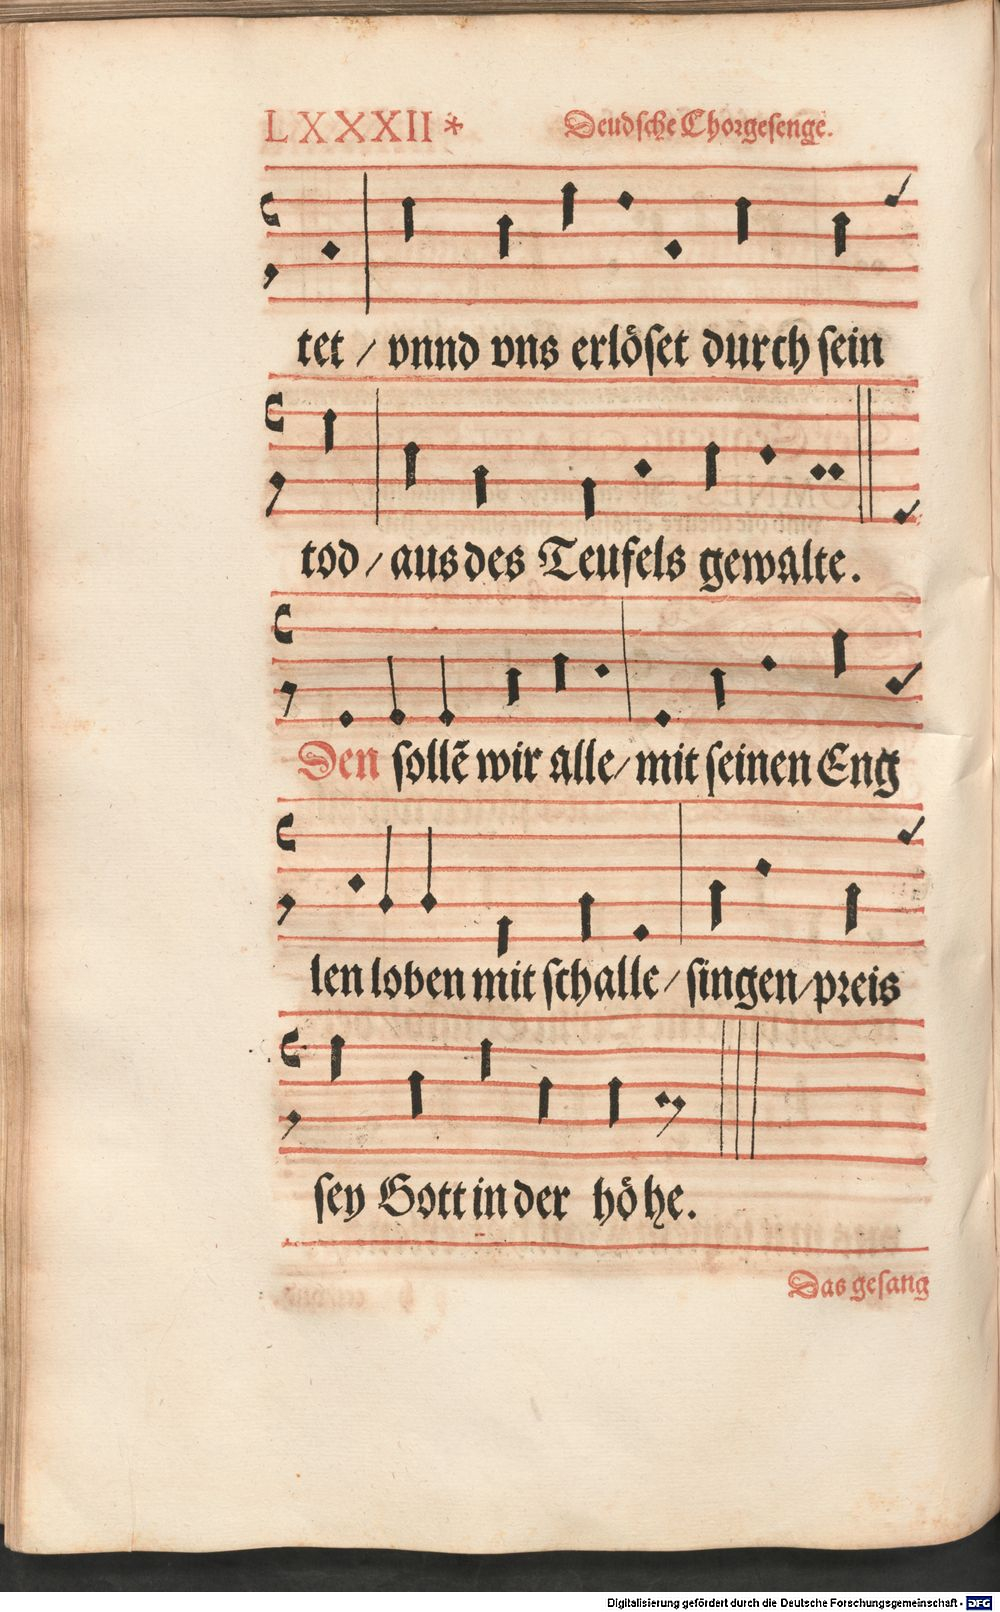 LXXXII * Deudsche Chorgesenge.
tet / vnnd vns erlöſet durch ſein
tod / aus des Teufels gewalte.
Den ſollẽ wir alle / mit ſeinen Eng
len loben mit ſchalle / ſingen / preis
ſey Gott in der höhe.
Das geſang
Digitalisierung gefördert durch die Deutsche Forschungsgemeinschaft - DFG